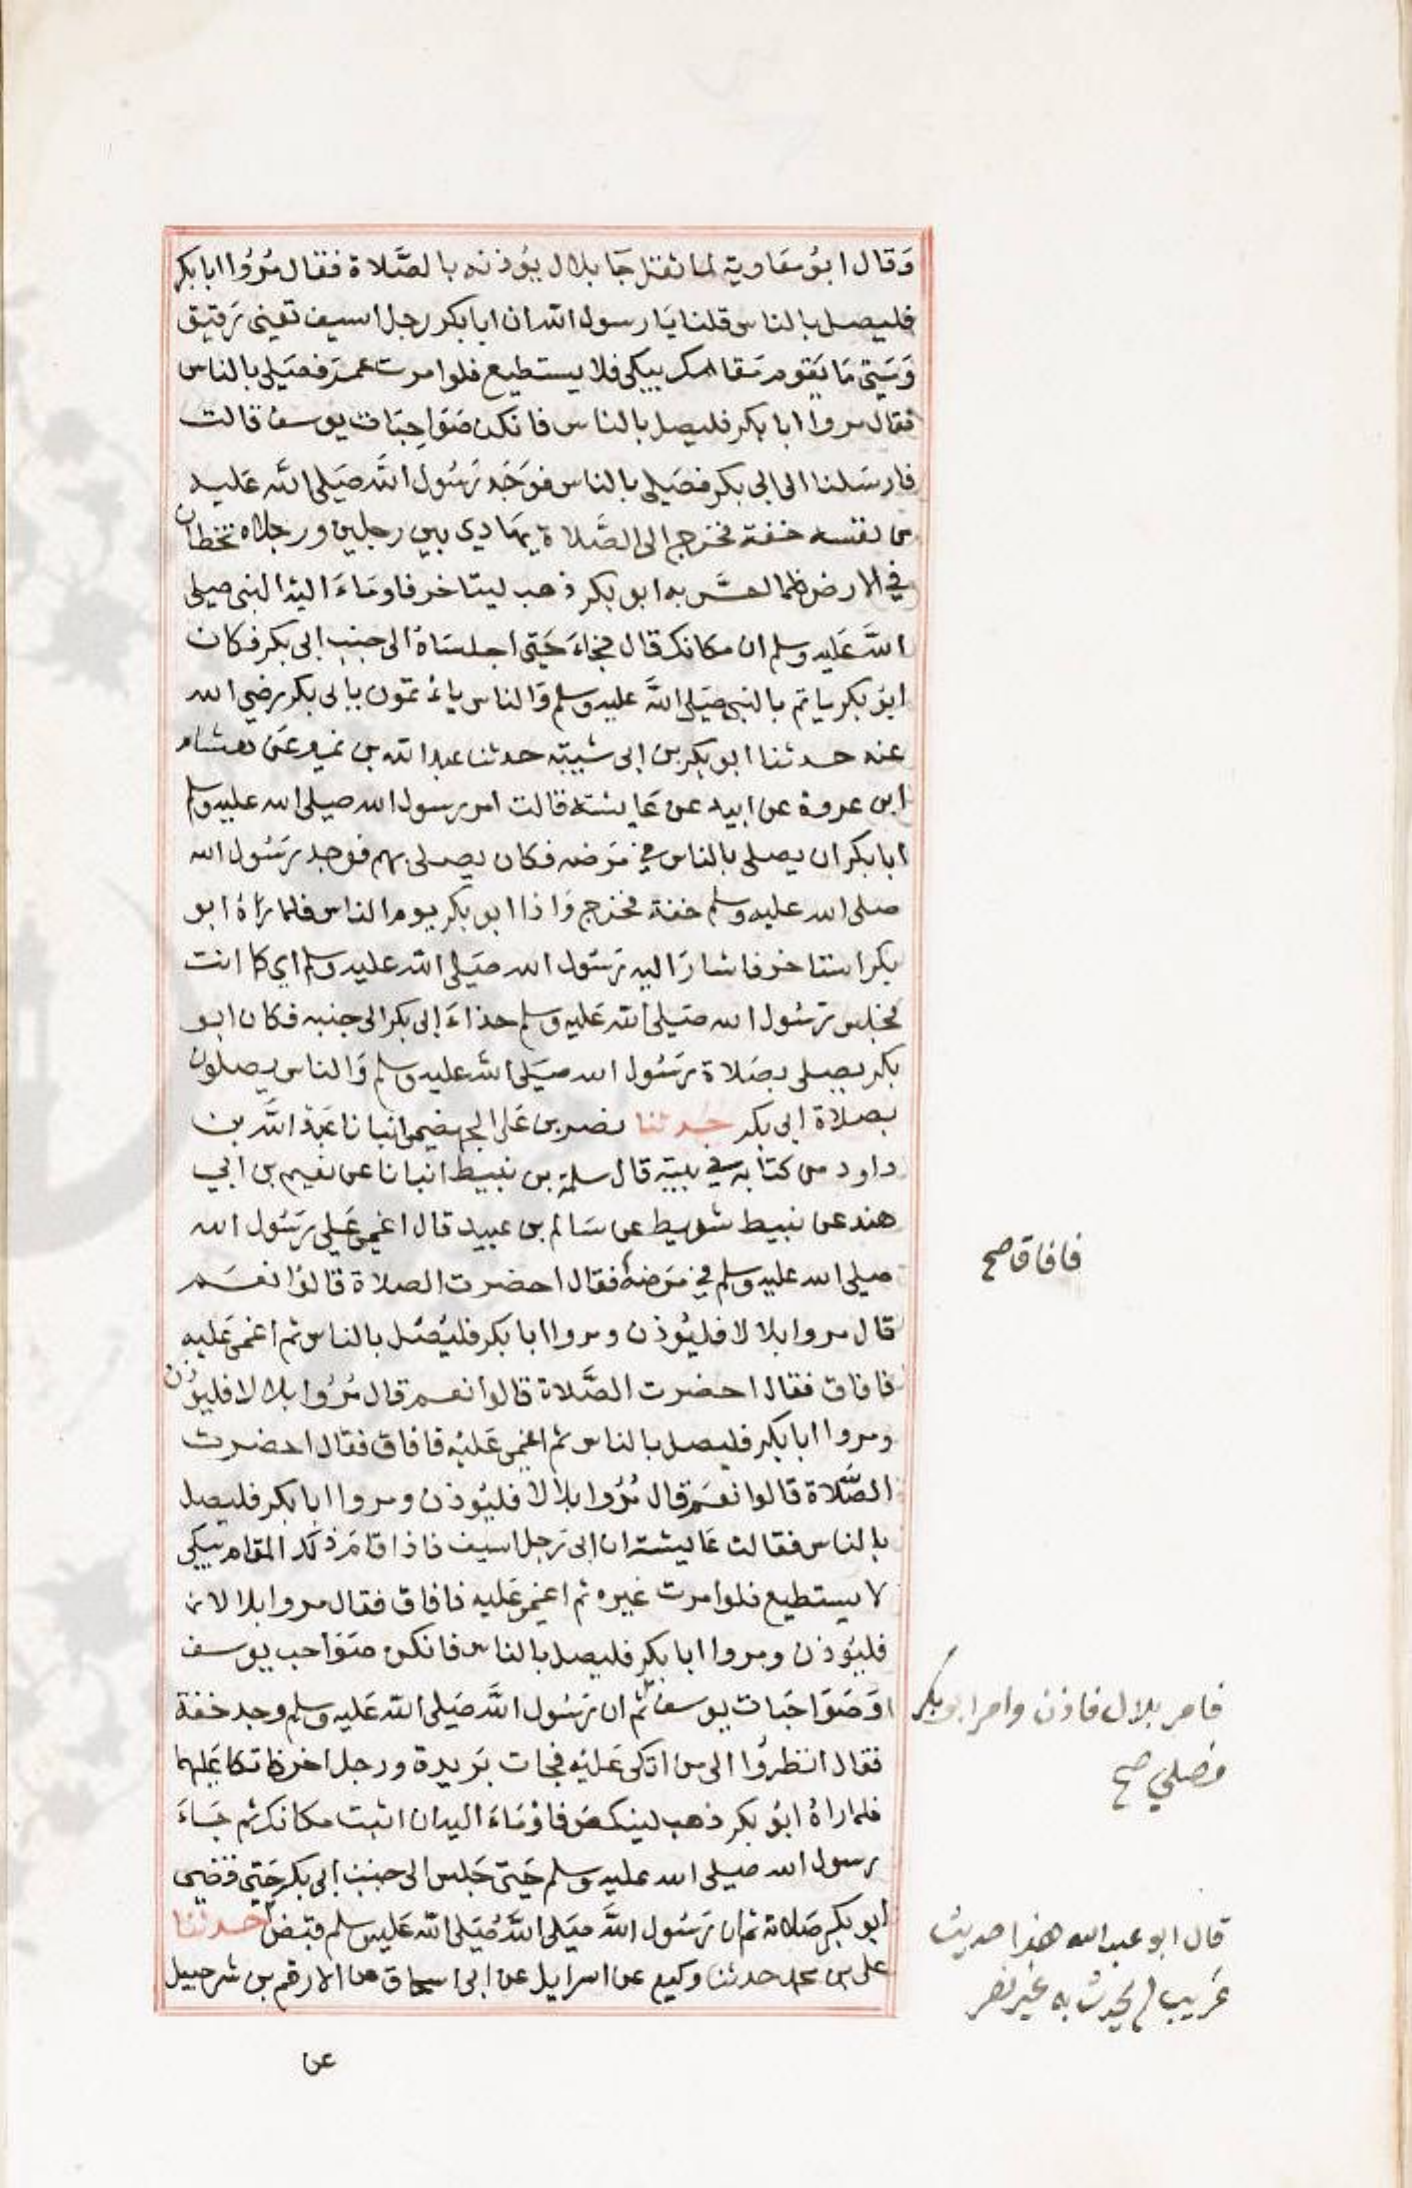 وَقال ابوُ معَاوية لما ثقل جَا بلال يؤذنه بالصَّلاة فقال مُرُوا ابا بكر
فليصل بالناس قلنا يَا رسول الله ان ابا بكر رجل اسيف تعني رَقيق
وَمَتى مَا يَقوم مَقامك يبكي فلا يستطيع فلو امرت عمرَ فصَلى بالناس
فقال مروا ابا بكر فليصل بالناس فانكن صَوَاحِبَات يوسف قالت
فارسَلنا الى ابي بكر فصَلى بالناس فوَجَد رَسُول الله صَلى الله عَليه
من نفسه خفة فخرج الى الصَّلاة يهَادي بين رجلين ورجلاه تخطان
في الارض فلما احسَّ به ابو بكر ذهب ليتاخر فاومَاءَ اليه النبي صلى
الله عَليه وسلم ان مكانك قال فجاءَ حَتى اجلسَاهُ الى جنب ابي بكر فكان
ابوُ بكر ياتم بالنبي صَلى الله عليه وسلم وَالناس ياءتمون بابي بكر رضي الله
عنه حدثنا ابو بكر بن ابي شيبة حدثنا عبد الله بن نمير عَن هشام
ابن عروة عن ابيه عن عَايشة قالت امر رسول الله صلى الله عليه وسلم
ابا بكر ان يصلي بالناس في مَرضه فكان يصلي بهم فوجد رَسُول الله
صلى الله عليه وسلم خفة فخرج وَاذا ابو بكر يوم الناس فلما رَاهُ ابو
بكر استاخر فاشارَ اليه رَسُول الله صَلى الله عليه وسلم اي كما انت
فجلس رَسُول الله صَلى الله عَليه وسلم حذاءَ ابي بكر الى جنبه فكان ابو
بكر يصلي بصَلاة رَسُول الله صَلى الله عليه وسلم وَالناس يصلون
بصلاة ابي بكر حدثنا نصر بن عَلى الجهضمي انبانا عَبد الله بن
داود من كتابه في بيته قال سلمة بن نبيط انبانا عن نعيم بن ابي
هند عن نبيط شريط عن سَالم بن عبيد قال اغمي عَلى رَسُول الله
صلى الله عليه وسلم في مَرضه فقال احضرت الصلاة قالوُا نعَم
قال مروا بلالا فليُوذن ومروا ابا بكر فليُصَل بالناس ثم اغمى عَليه
فافاق فقال احضرت الصَّلاة قالوا نعم قال مُرُوا بلالا فليؤذن
ومروا ابا بكر فليصل بالناس ثم اغمى عَليْه فافاق فقال احضرت
الصَّلاة قالوا نعَم قال مُرُوا بلالا فليُوذن ومروا ابا بكر فليصل
بالناس فقالت عَايشة ان ابي رَجل اسيف فاذا قامَ ذلك المقام يبكي
لا يستطيع فلو امرت غيره ثم اغمي عَليه فافاق فقال مروا بلالا
فليُوذن ومروا ابا بكر فليصل بالناس فانكن صَوَاحب يوسف
اوَ صَوَاحَبات يوسف ثم ان رَسُول الله صَلى الله عَليه وسلم وجد خفة
فقال انظروُا الى من اتكى عَليْه فجات بَريرة ورجل اخر فاتكا عَليهما
فلما راهُ ابوُ بكر ذهب لينكصَ فاوْمَاءَ اليه ان اثبت مكانك ثم جَاءَ
رسول الله صلى الله عليه وسلم حَتى جَلس الى جنب ابي بكر حَتى قضى
ابو بكر صَلاته ثم ان رَسُول الله صَلى الله صَلى الله عَليه وسلم قبضَ حدثنا
على بن محمد حدثنا وكيع عن اسرايل عن ابي اسحاق عن الارقم بن شرحبيل
عن
فافاق صح
فامر بلال فاذن وامر ابو بكر
فصلي صح
قال ابو عبد الله هذا حديث
غريب لم يحدث به غير نصر